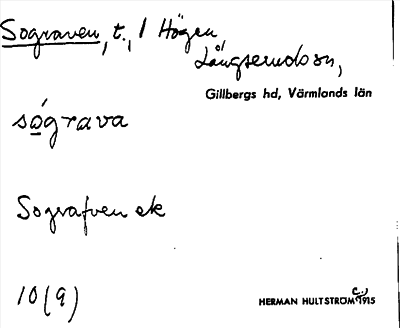 Sograven, t., 1 Högen
Långseruds sn,
Gillbergs hd, Värmlands län
sógrava
Sografven ek
10(9)
HERMAN HULTSTRÖM c.) 1915